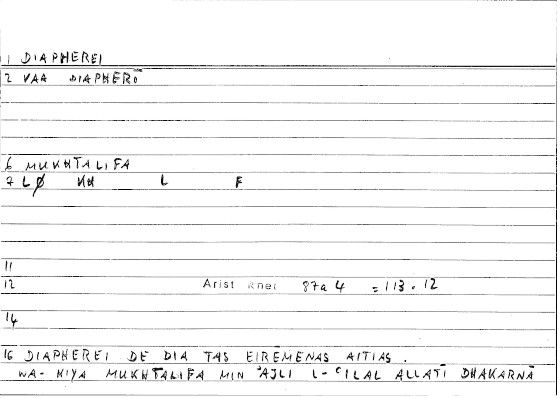 1 DIAPHEREI
2 VAA DIAPHERŌ
6 MUKHTALIFA
7 LØ KH L F
11
12 Arist Rhet 87a 4 = 113.12
14
16 DIAPHEREI DE DIA TAS EIRĒMENAS AITIAS.
WA-HIYA MUKHTALIFA MIN ʾAJLI L-ʿILAL ALLATĪ DHAKARNĀ